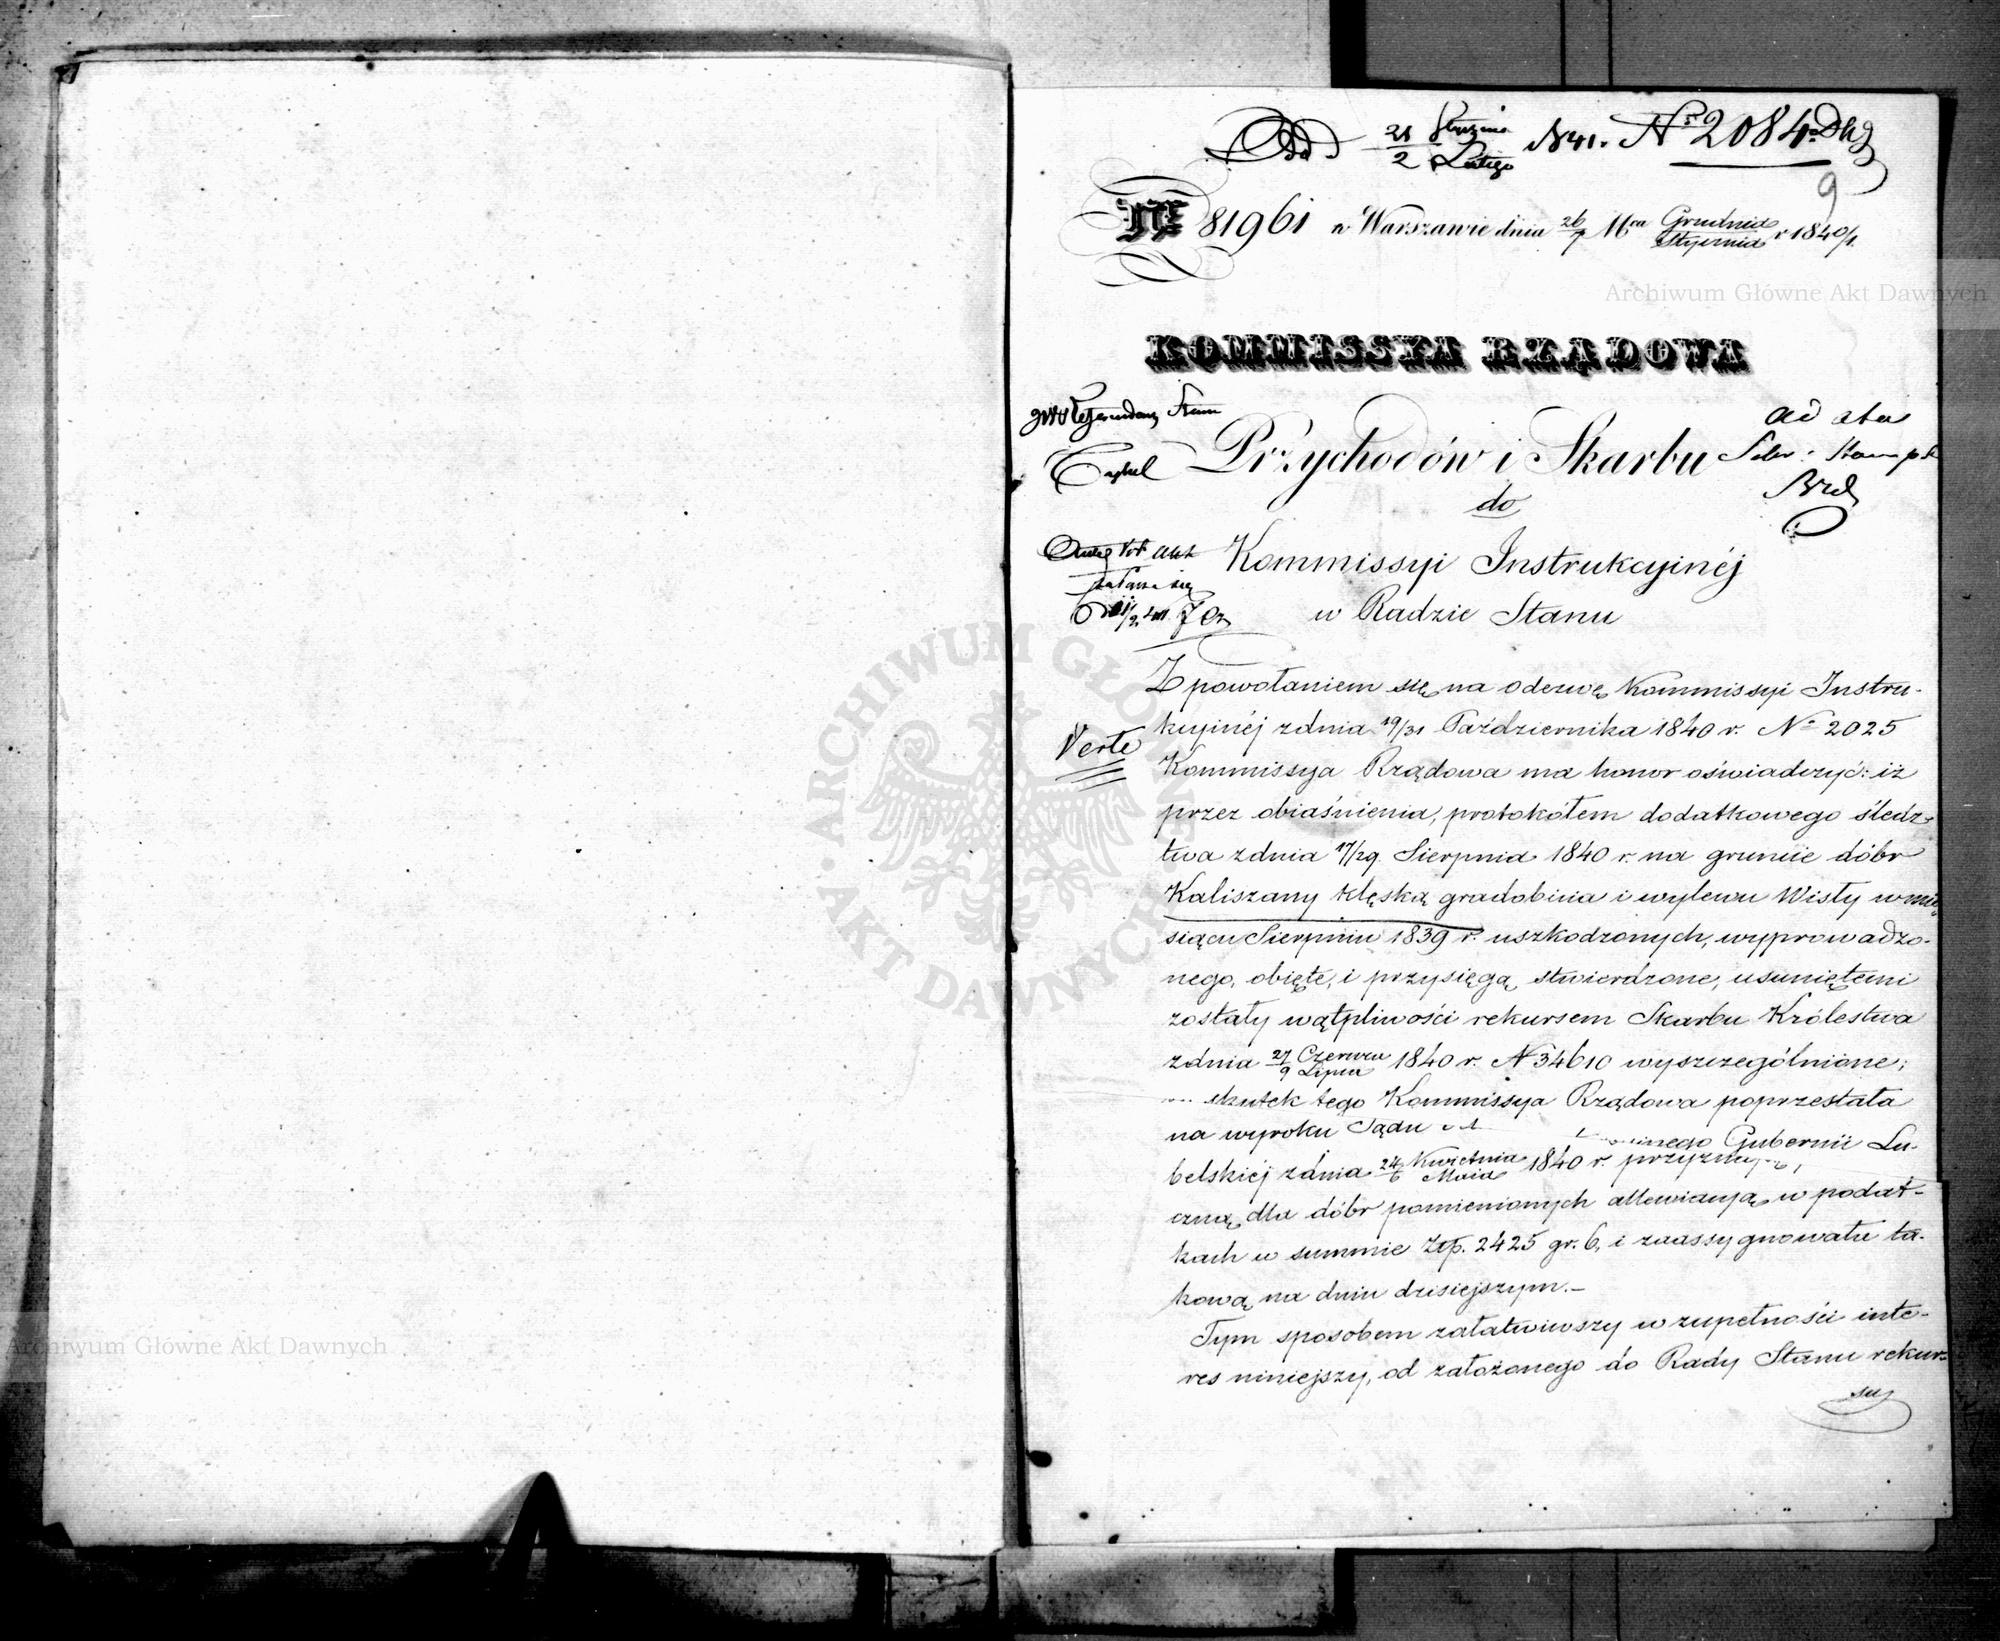 21 Stycznia
2 Lutego 1841. Nr 2084.
9
Nr 81961 w Warszawie dnia 26/7 Mca Grudnia/Stycznia r 1840/1.
Archiwum Główne Akt Dawnych
KOMMISSYA RZĄDOWA
Przychodów i Skarbu
do
Kommissyi Instrukcyinéj
w Radzie Stanu
Z powołaniem się na odezwę Kommissyi Instru-
kcyinéj z dnia 19/31 Października 1840 r. No 2025
Verte
Kommissya Rządowa ma honor oświadczyć: iż
przez obiaśnienia, protokółem dodatkowego śledz-
twa z dnia 17/29. Sierpnia 1840 r. na gruncie dóbr
Kaliszany klęską gradobicia i wylewu Wisły w mie-
siącu Sierpniu 1839 r. uszkodzonych, wyprowadzo-
nego, obięte, i przysięgą stwierdzone, usuniętemi
zostały wątpliwości rekursem Skarbu Królestwa
z dnia 27 Czerwca/9 Lipca 1840 r. N 34610 wyszczególnione;
skutek tego Kommissya Rządowa poprzestała
na wyroku Sądu Gubernii Lu-
belskiéj z dnia 24 Kwietnia/6 Maia 1840 r.
dla dóbr pomienionych allewiacyą w podat-
kach w summie Złp. 2425 gr. 6, i zaassygnowała ta-
kową na dniu dzisiejszym.-
Tym sposobem załatwiwszy w zupełności inte-
res niniejszy, od założonego do Rady Stanu rekur-
su
ARCHIWUM GŁÓWNE AKT DAWNYCH
Archiwum Główne Akt Dawnych